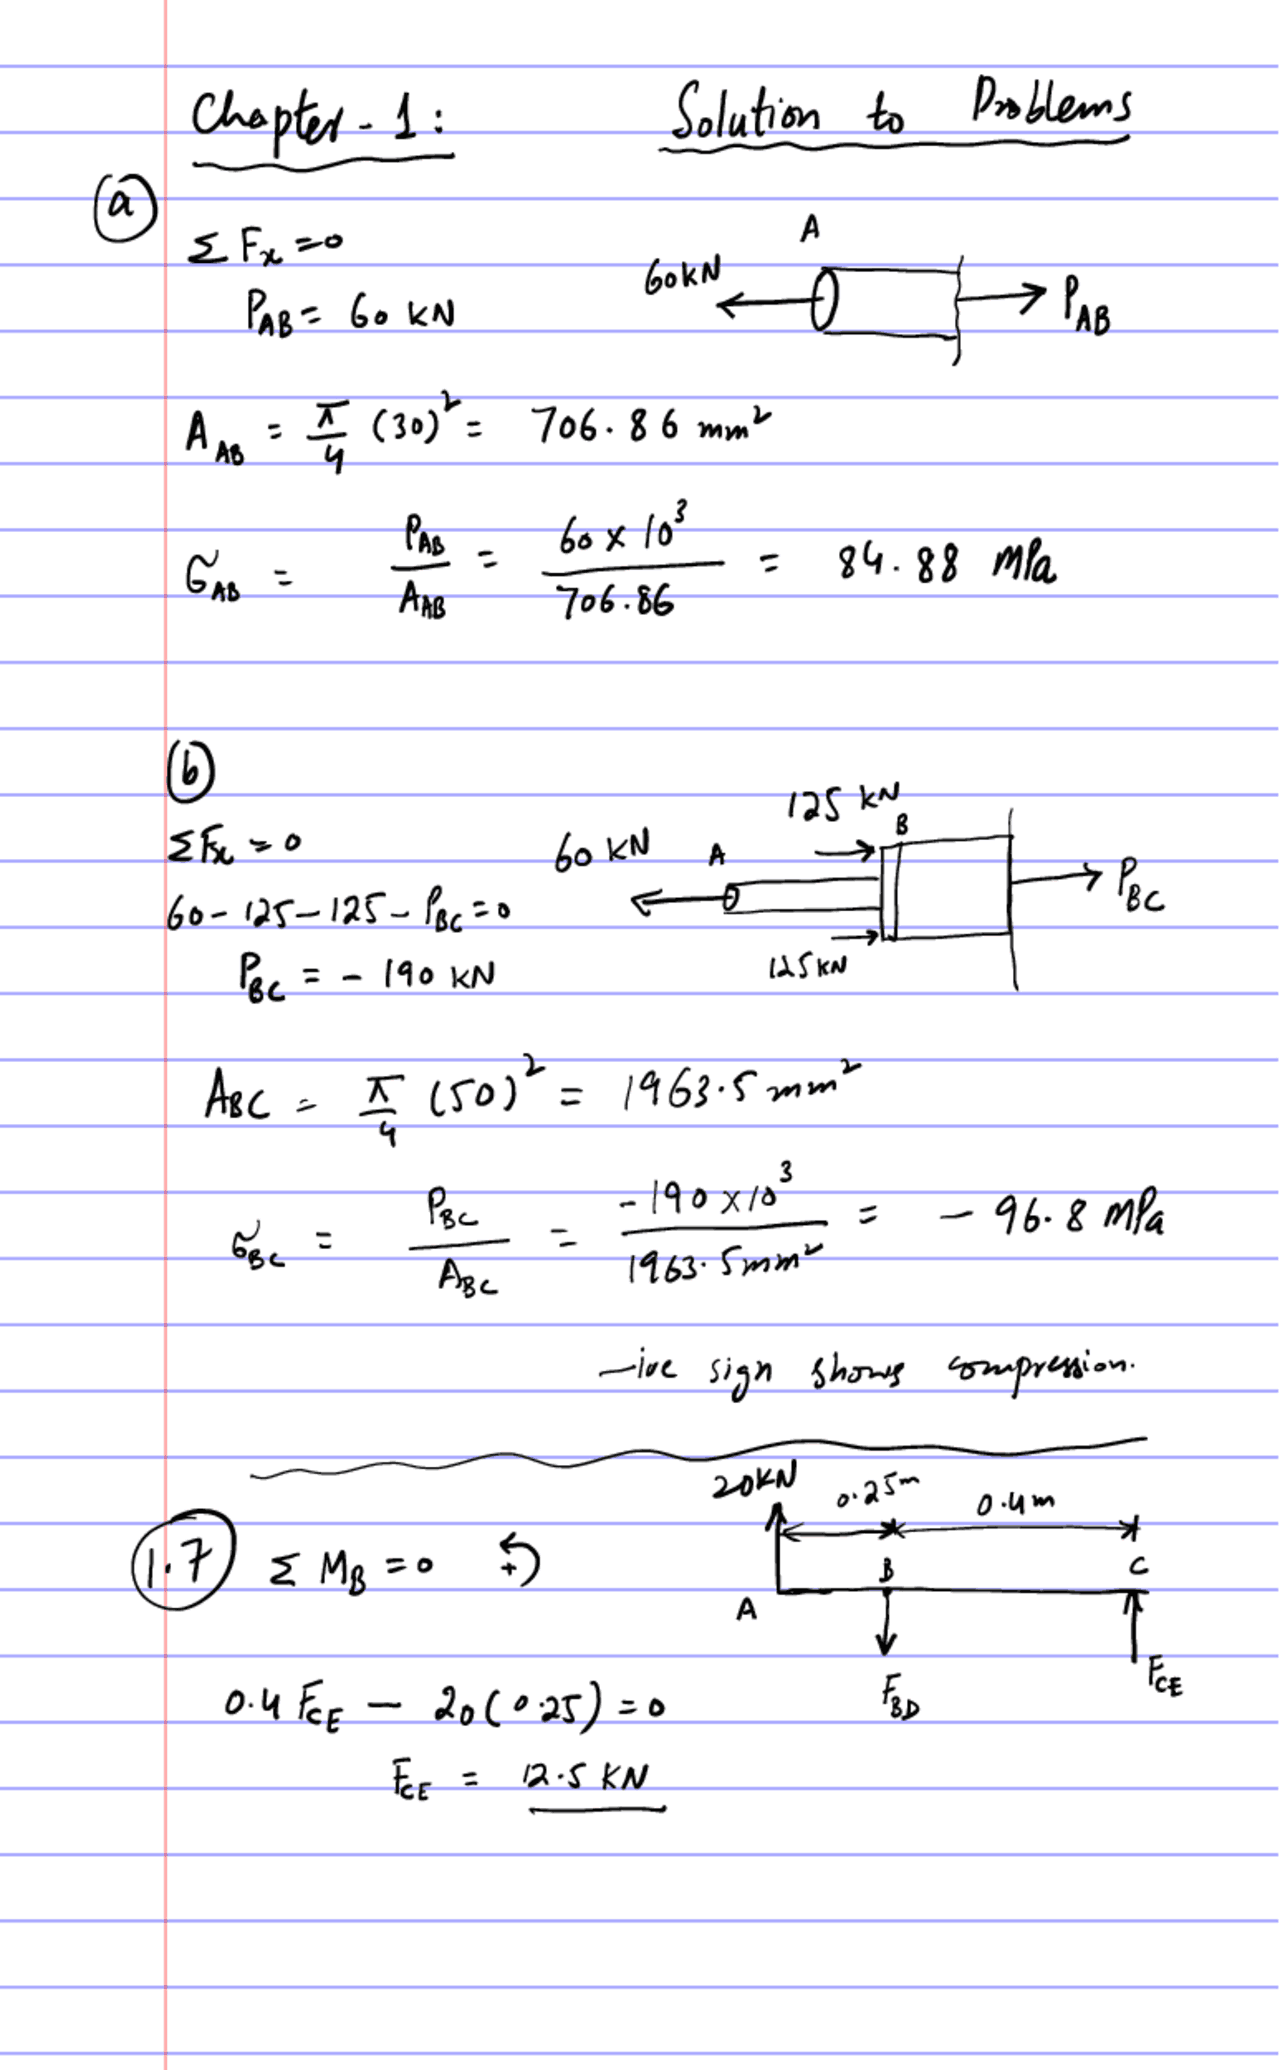 Chapter - 1: Solution to Problems
(a)
Σ Fx = 0
A
60 kN
P_AB = 60 KN
P_AB
A_AB = π/4 (30)² = 706.86 mm²
σ_AB = P_AB / A_AB = 60 x 10³ / 706.86 = 84.88 MPa
(b)
125 KN
ΣFx = 0
60 KN A B
P_BC
60 - 125 - 125 - P_BC = 0
125 KN
P_BC = - 190 KN
A_BC = π/4 (50)² = 1963.5 mm²
σ_BC = P_BC / A_BC = -190 x 10³ / 1963.5 mm² = - 96.8 MPa
-ive sign shows compression.
20 KN 0.25 m 0.4 m
1.7 Σ M_B = 0 ↶+
A B C
F_BD F_CE
0.4 F_CE - 20 (0.25) = 0
F_CE = 12.5 KN